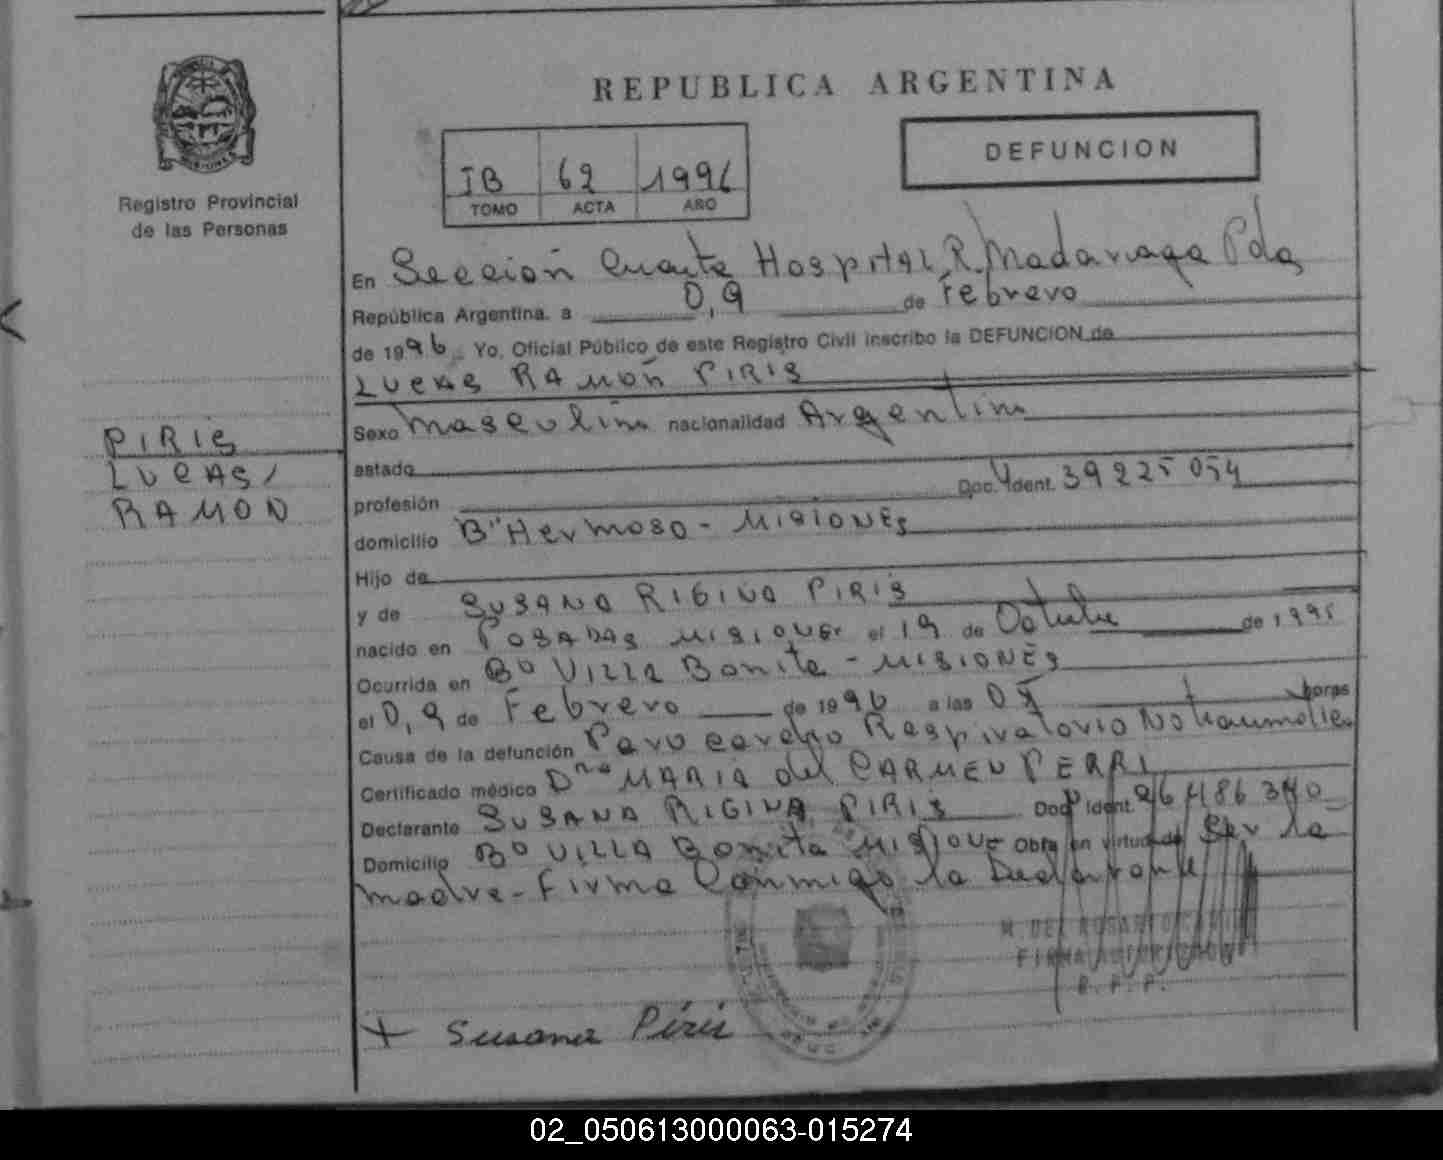 REPUBLICA ARGENTINA
DEFUNCION
IB 62 1996
TOMO ACTA AÑO
Registro Provincial
de las Personas
En Sección Cuarta Hospital R. Madariaga Pdas
República Argentina, a 0,9 de Febrero
de 1996 Yo, Oficial Público de este Registro Civil inscribo la DEFUNCION de
LUCAS RAMÓN PIRIS
Sexo Masculino nacionalidad Argentino
estado
profesión Doc. Ident. 39225054
domicilio Bº Hermoso - MISIONES
Hijo de
y de SUSANA RIGINA PIRIS
nacido en POSADAS MISIONES el 19 de Octubre de 1995
Ocurrida en Bº VILLA Bonita - MISIONES
el 0,9 de Febrero de 1996 a las horas
Causa de la defunción Paro cardio Respiratorio No traumatico
Certificado médico Dra MARIA del CARMEN PERRI
Declarante SUSANA RIGINA PIRIS Doc. Ident. 26486340
Domicilio Bº VILLA Bonita MISIONE Obra en virtud de Ser la
madre - Firma Conmigo la Declarante
PIRIS
LUCAS
RAMON
M. DEL ROSARIO
FIRMA AUTORIZADA
R. P. P.
+ Susana Piris
02_050613000063-015274